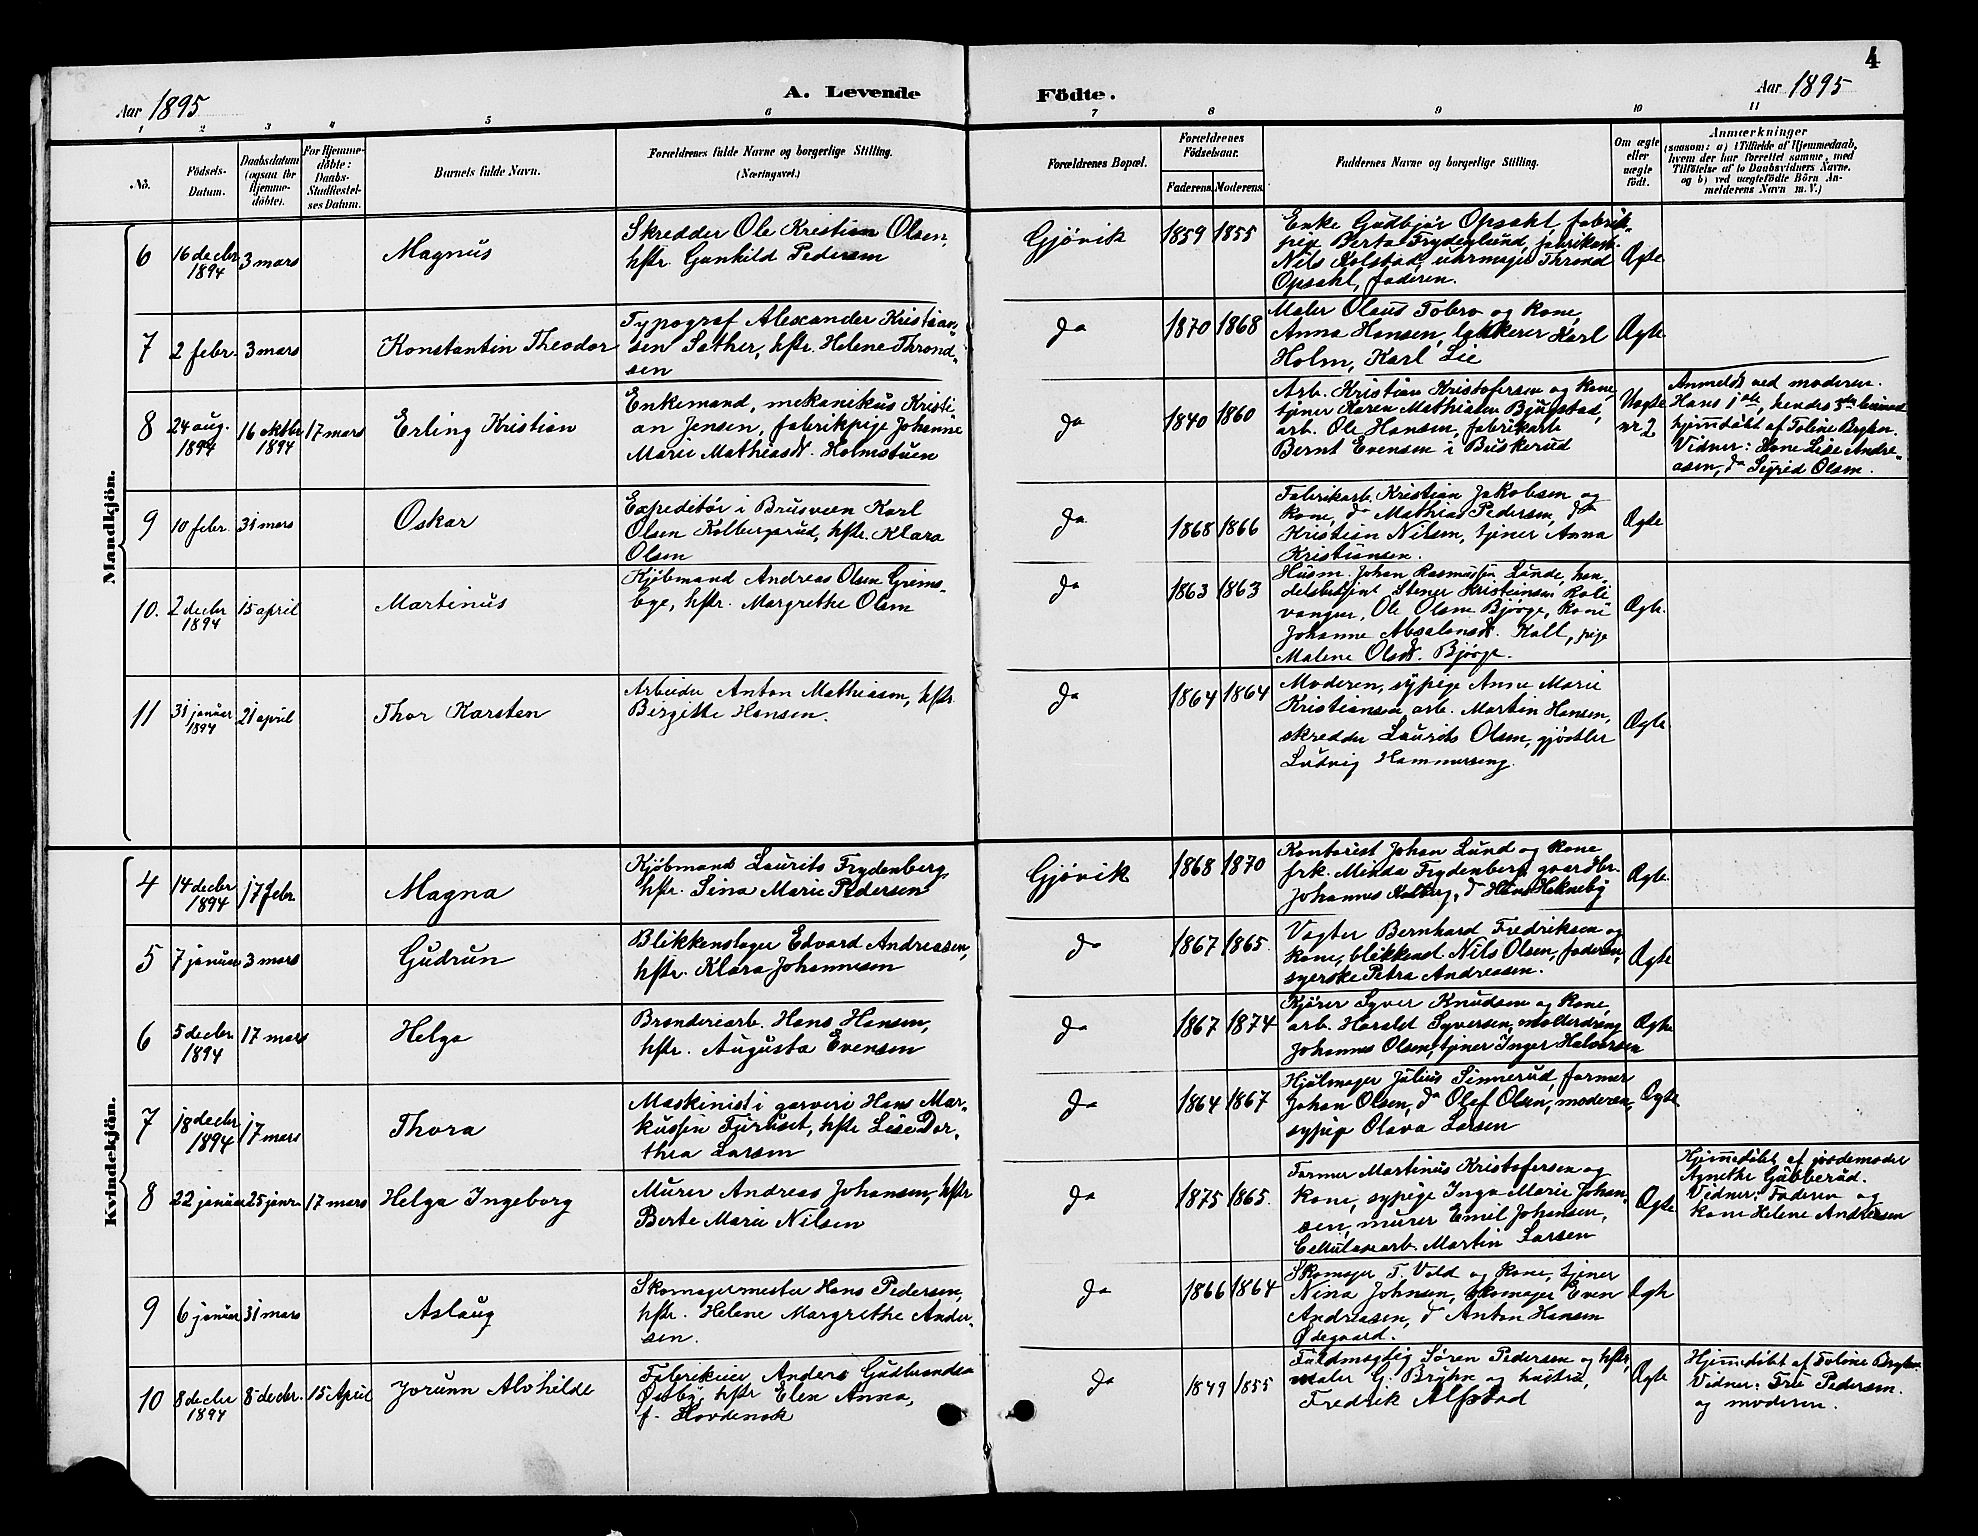 4
Aar 1895
A. Levende
Födte.
Aar 1895
1 2 3 4 5 6 7 8 9 10 11
No.
Födsels-
Datum.
Daabsdatum
(ogsaa for
Hjemme-
döbte).
For Hjemme-
döbte:
Daabs-
Stadfæstel-
ses Datum.
Barnets fulde Navn.
Forældrenes fulde Navne og borgerlige Stilling.
(Næringsvei.)
Forældrenes Bopæl.
Forældrenes
Födselsaar.
Faderens. Moderens.
Faddernes Navne og borgerlige Stilling.
Om ægte
eller
uægte
födt.
Anmærkninger
(saasom: a) i Tilfælde af Hjemmedaab,
hvem der har forrettet samme, med
Tilföielse af to Daabsvidners Navne.
og b) ved uægtefödte Börn An-
melderens Navn m. V.)
Mandkjön.
6
16 decbr
1894
3 mars
Magnus
Skredder Ole Kristian Olsen,
hstr. Gunhild Pedersen
Gjövik
1859 1855
Enke Gudbjör Opsahl, fabrik-
pige Berta Frydenlund, fabrikarb.
Nils Kolstad, uhrmager Thrond
Opsahl, faderen.
Ægte
7
2 febr.
3 mars
Konstantin Theodor
Typograf Alexander Kristian-
sen Sæther, hstr. Helene Thrond-
sen
do
1870 1868
Maler Olaus Tobro og kone,
Anna Hansen, lakkerer Karl
Holm, Karl Lie
Ægte
8
24 aug.
1894
16 oktbr
1894
17 mars
Erling Kristian
Enkemand, mekanikus Kristi-
an Jensen, fabrikpige Johanne
Marie Mathiasdr. Holmstuen
do
1840 1860
Arb. Kristian Kristofersen og kone,
tjener Karen Mathiasen Bjugstad,
arb. Ole Hansen, fabrikarb.
Bernt Evensen i Buskerud
Uægte
nr 2
Anmeldt ved moderen.
Hans 1ste, hendes
hjemdöbt af Toline Bryhn.
Vidner: Kone Lise Andre-
asen, do Sigrid Olsen.
9
10 febr.
31 mars
Oskar
Expeditör i Brusveen Karl
Olsen Kolbergsrud, hstr. Klara
Olsen
do
1868 1866
Fabrikarb. Kristian Jakobsen og
kone, do Mathias Pedersen, do
Kristian Nilsen, tjener Anna
Kristiansen.
Ægte
10.
2 decbr
1894
15 april
Martinus
Kjöbmand Andreas Olsen Greims-
Ege, hstr. Margrethe Olsen
do
1863 1863
Husm. Johan Rasmussen Lunde, han-
delsbetjent Stener Kristiansen
Ole Olsen Bjørge, kone
Johanne Absalonsdr. Kall, pige
Malene Olsdr. Bjørge.
Ægte.
11
31 januar
1894
21 april
Thor Karsten
Arbeider Anton Mathiasen, hstr.
Birgitte Hansen.
do
1864 1864
Moderen, sypige Anne Marie
Kristiansen arb. Martin Hansen,
skredder Laurits Olsen, gjörtler
Ludvig Hammerseng.
Ægte
Kvindekjön.
4
14 decbr
1894
17 febr.
Magna
Kjöbmand Laurits Frydenberg,
hstr. Sina Marie Pedersen
Gjövik
1868 1870
Kontorist Johan Lund og kone
frk. Minda Frydenberg, gaardbr.
Johannes Kolberg, do Hans Hekneby
Ægte.
5
7 januar
3 mars
Gudrun
Blikkenslager Edvard Andreasen,
hstr. Klara Johannesen
do
1867 1865.
Vogter Bernhard Fredriksen og
kone, blikkensl. Nils Olsen, faderen,
syerske Petra Andreasen.
Ægte
6
5 decbr.
1894
17 mars
Helga
Brænderiarb. Hans Hansen,
hstr. Augusta Evensen
do
1867 1874
Kjörer Syver Knudsen og kone,
arb. Harald Syversen, mølledreng
Johannes Olsen, tjener Inger Halvorsen
Ægte
7
18 decbr
1894
17 mars
Thora
Maskinist i garveri Hans Mar-
kussen Furuset, hstr. Lise Dor-
thea Larsen
do
1864 1867
Hjulmager Julius Sinnerud, former
Johan Olsen, do Olaf Olsen, moderen,
sypige Olava Larsen
Ægte
8
22 januar
25 janr.
17 mars
Helga Ingeborg
Murer Andreas Johansen, hstr
Berte Marie Nilsen
do
1875 1865.
Former Martinus Kristofersen og
kone, sypige Inga Marie Johan-
sen, murer Emil Johansen,
Cellulosearb. Martin Larsen
Ægte
Hjemdöbt af jordemoder
Agnethe Gubberud.
Vidner: Faderen og
kone Helene Andersen
9
6 januar
31 mars
Aslaug
Skomagermester Hans Pedersen,
hstr. Helene Margrethe Ander-
sen.
do
1866 1864
Skomager T. Vold og kone, tjener
Nina Johnsen, skomager Even
Andreasen, do Anton Hansen
Ødegaard.
Ægte
10
8 decbr
1894
8 decbr.
15 April
Jorunn Alvhilde
Fabrikeier Anders Gudbrandsen
Østby, hstr Elen Anna,
f. Hovdenak
do
1849 1855
Fuldmægtig Søren Pedersen og hstr,
maler G. Bryhn og hustru,
Fredrik Alfstad
Ægte
Hjemdöbt af Toline Bryhn.
Vidner: Fru Pedersen.
og moderen.